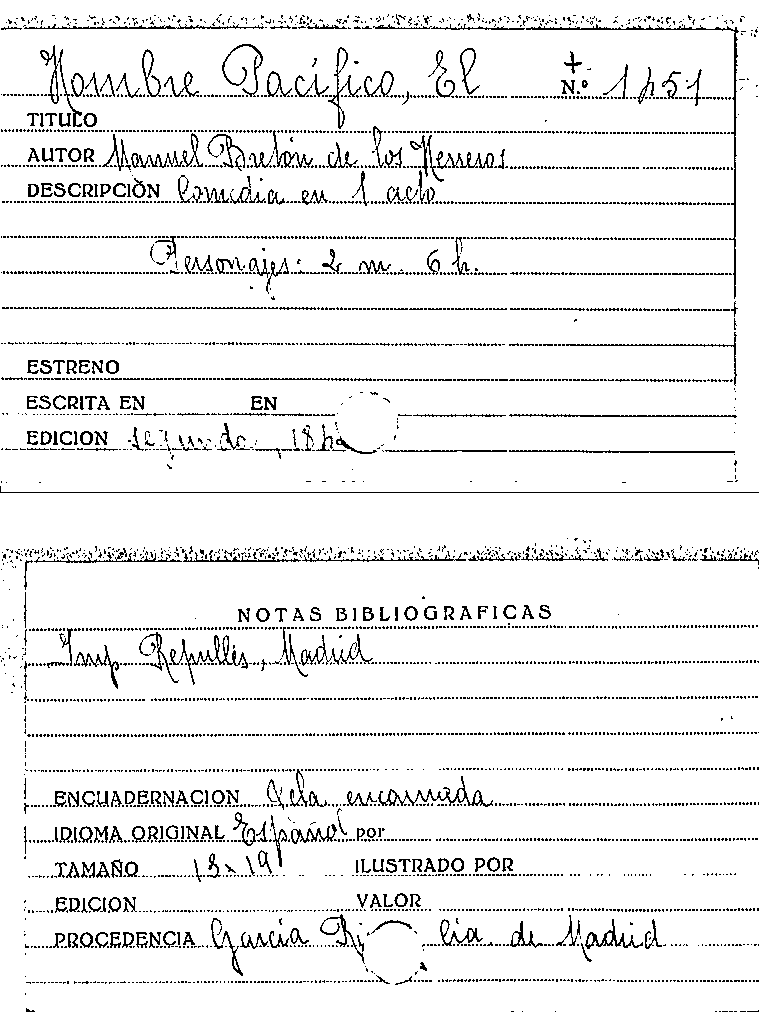 Hombre Pacífico, El + N.º 1451
TITULO
AUTOR Manuel Bretón de los Herreros
DESCRIPCIÓN Comedia en 1 acto
Personajes: 2 m. 6 h.
ESTRENO
ESCRITA EN EN
EDICION segunda,
NOTAS BIBLIOGRAFICAS
Imp Repullés, Madrid
ENCUADERNACION tela encarnada
IDIOMA ORIGINAL Español por
TAMAÑO 13x19 ILUSTRADO POR
EDICION VALOR
PROCEDENCIA García de Madrid